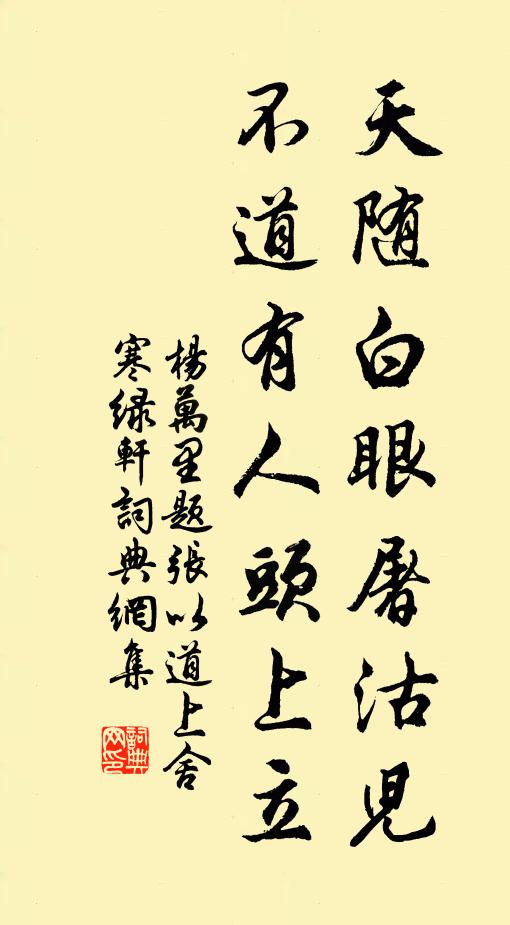 天随白眼屠沽児
不道有人頭上立
楊萬里题張以道上舍
寒緑軒詞典網集
詞典
网印